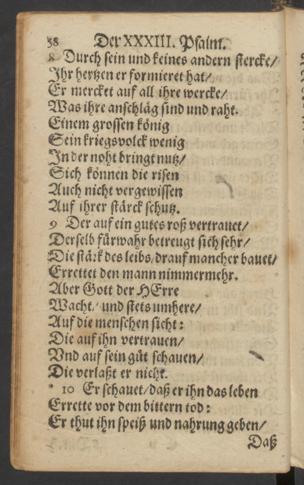 58 Der XXXIII. Psalm.
8 Durch sein und keines andern stercke/
Ihr hertzen er formieret hat/
Er mercket auf all ihre wercke/
Was ihre anschläg sind und raht.
Einem grossen König
Sein kriegsvolck wenig
In der noht bringt nutz/
Sich können die risen
Auch nicht vergewissen
Auf ihrer stärck schutz.
9 Der auf ein gutes roß vertrauet/
Derselb fürwahr betreugt sich sehr/
Die stärk des leibs/ drauf mancher bauet/
Errettet den mann nimmermehr.
Aber Gott der HErre
Wacht/ und stets umhere/
Auf die menschen sicht:
Die auf ihn vertrauen/
Vnd auf sein güt schauen/
Die verlaßt er nicht.
* 10 Er schauet/ daß er ihn das leben
Errette vor dem bittern tod:
Er thut ihn speiß und nahrung geben/
Daß